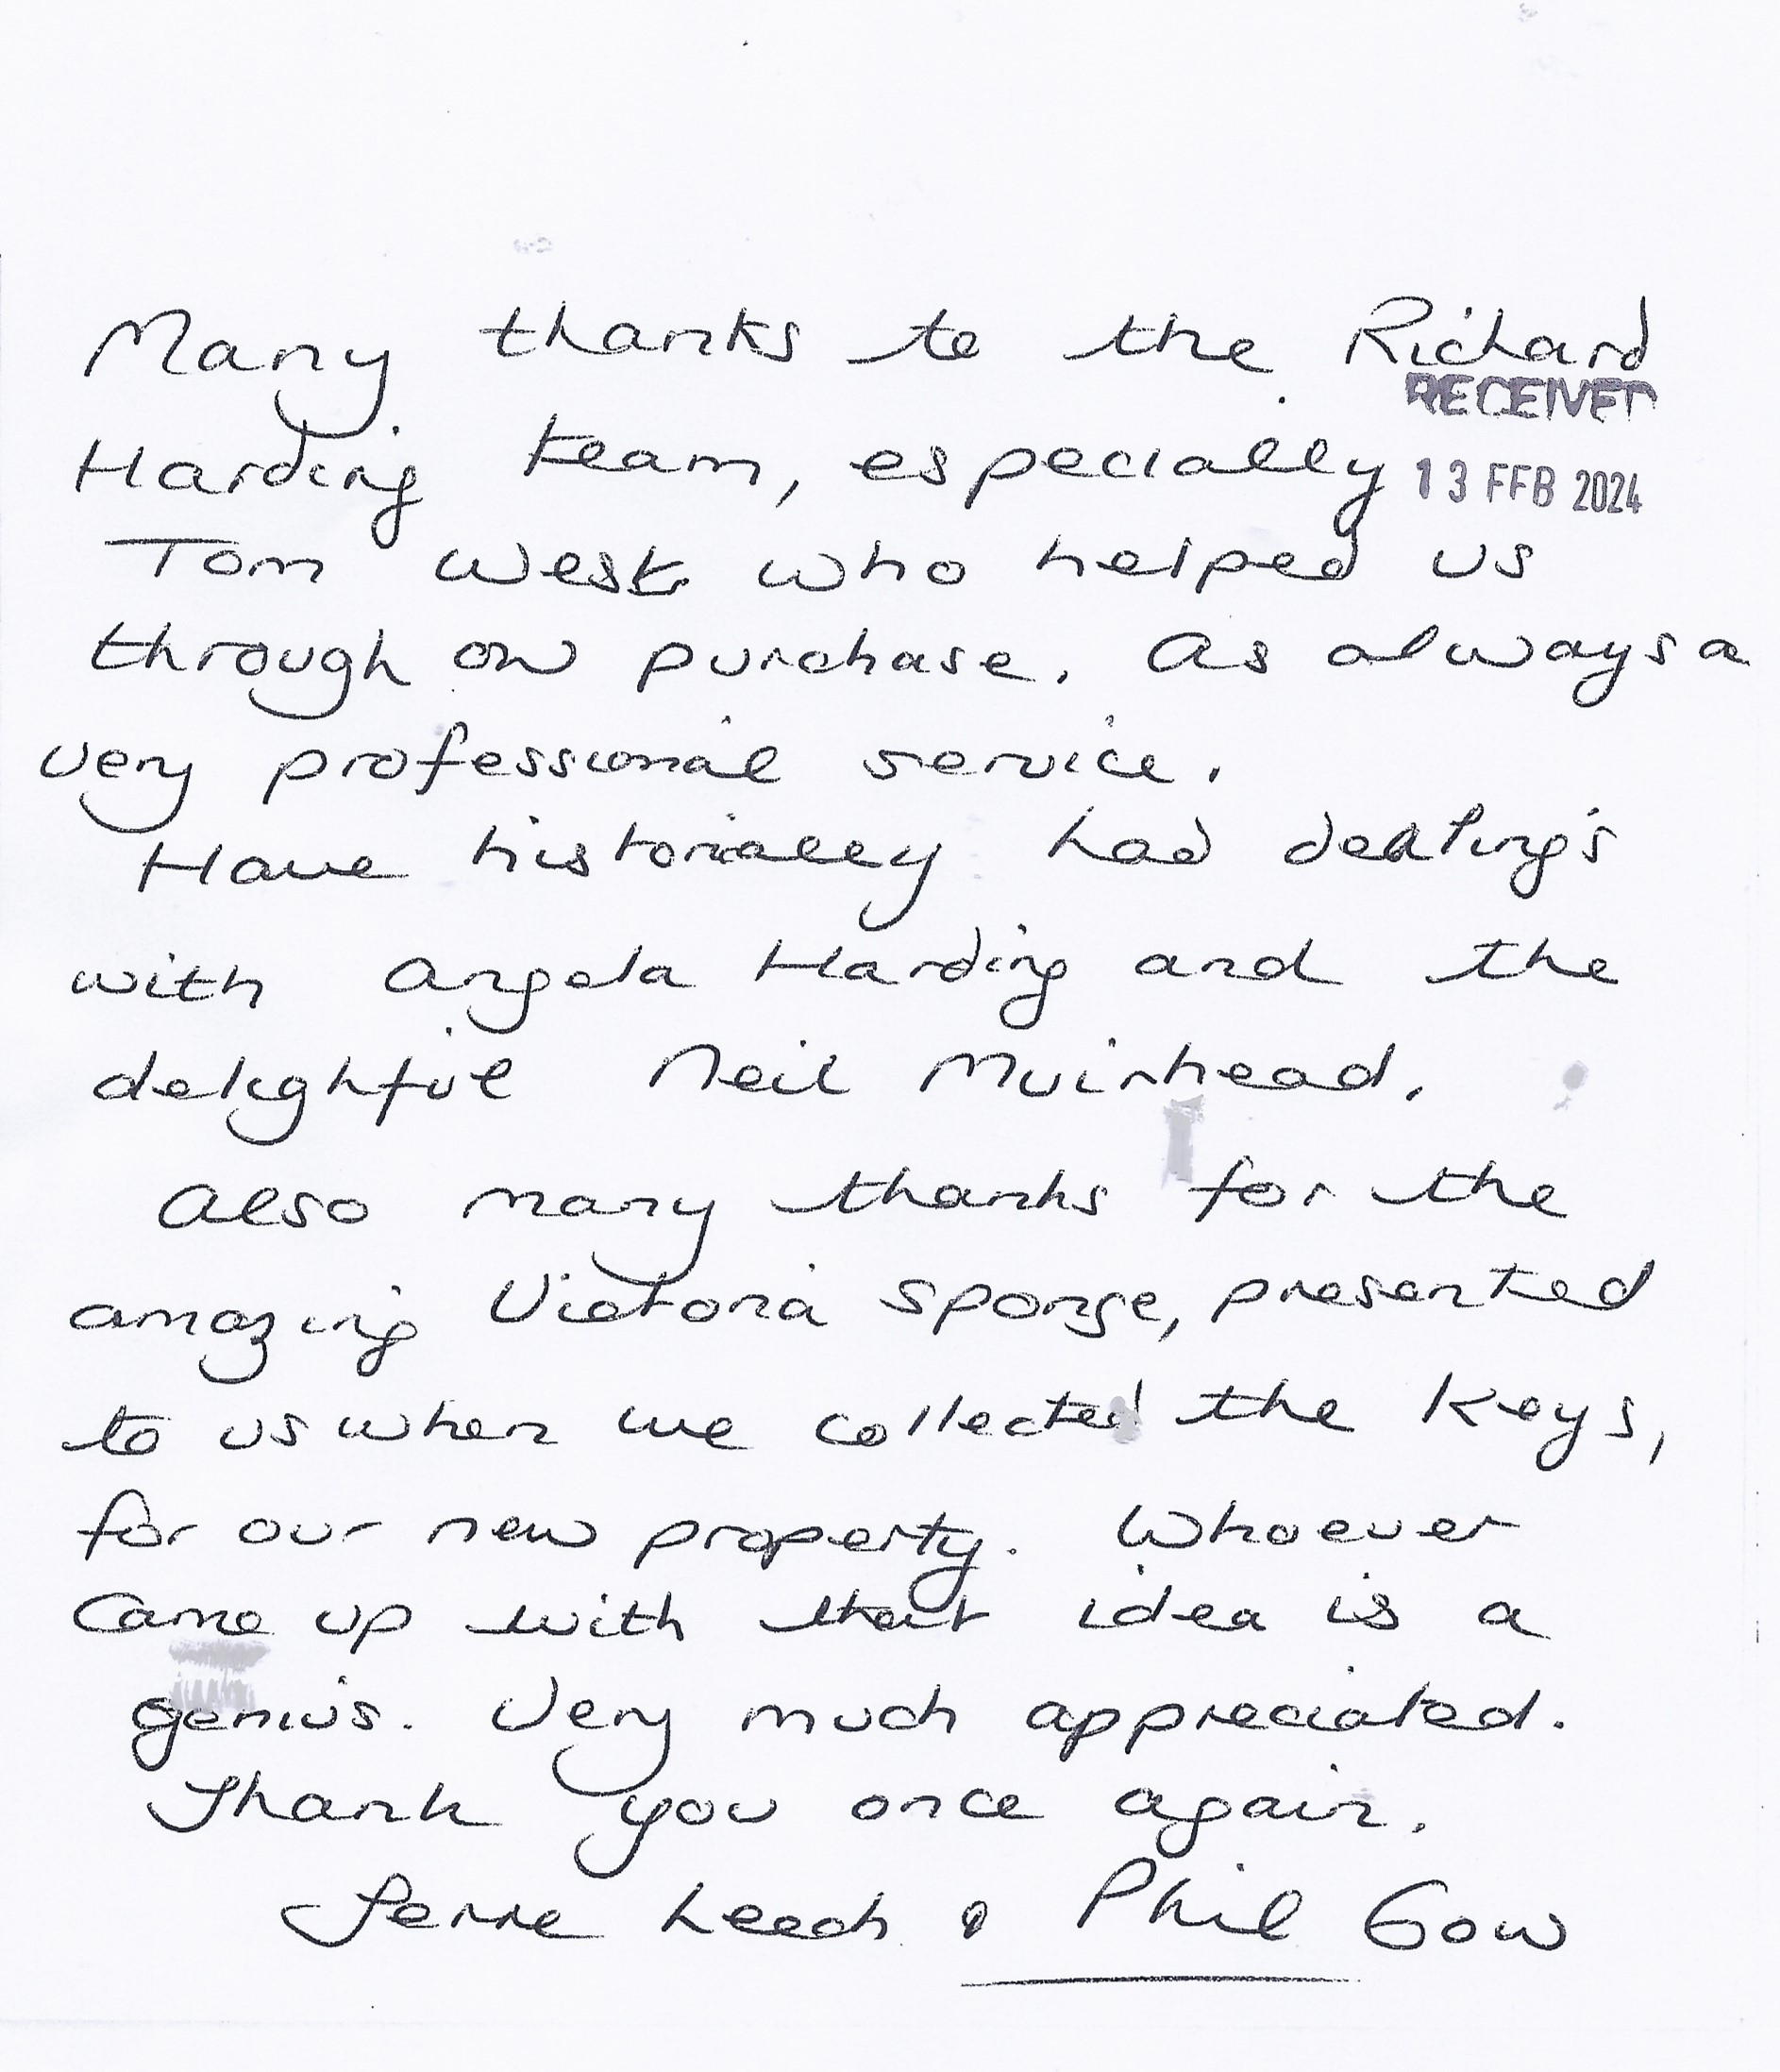 Many thanks to the Richard
RECEIVED
Harding team, especially
13 FEB 2024
Tom West who helped us
through our purchase. As always a
very professional service.
Have historically had dealing's
with Angela Harding and the
delightful Neil Muirhead.
Also many thanks for the
amazing Victoria sponge, presented
to us when we collected the keys,
for our new property. Whoever
came up with that idea is a
genius. Very much appreciated.
Thank you once again.
Leech & Phil Gow